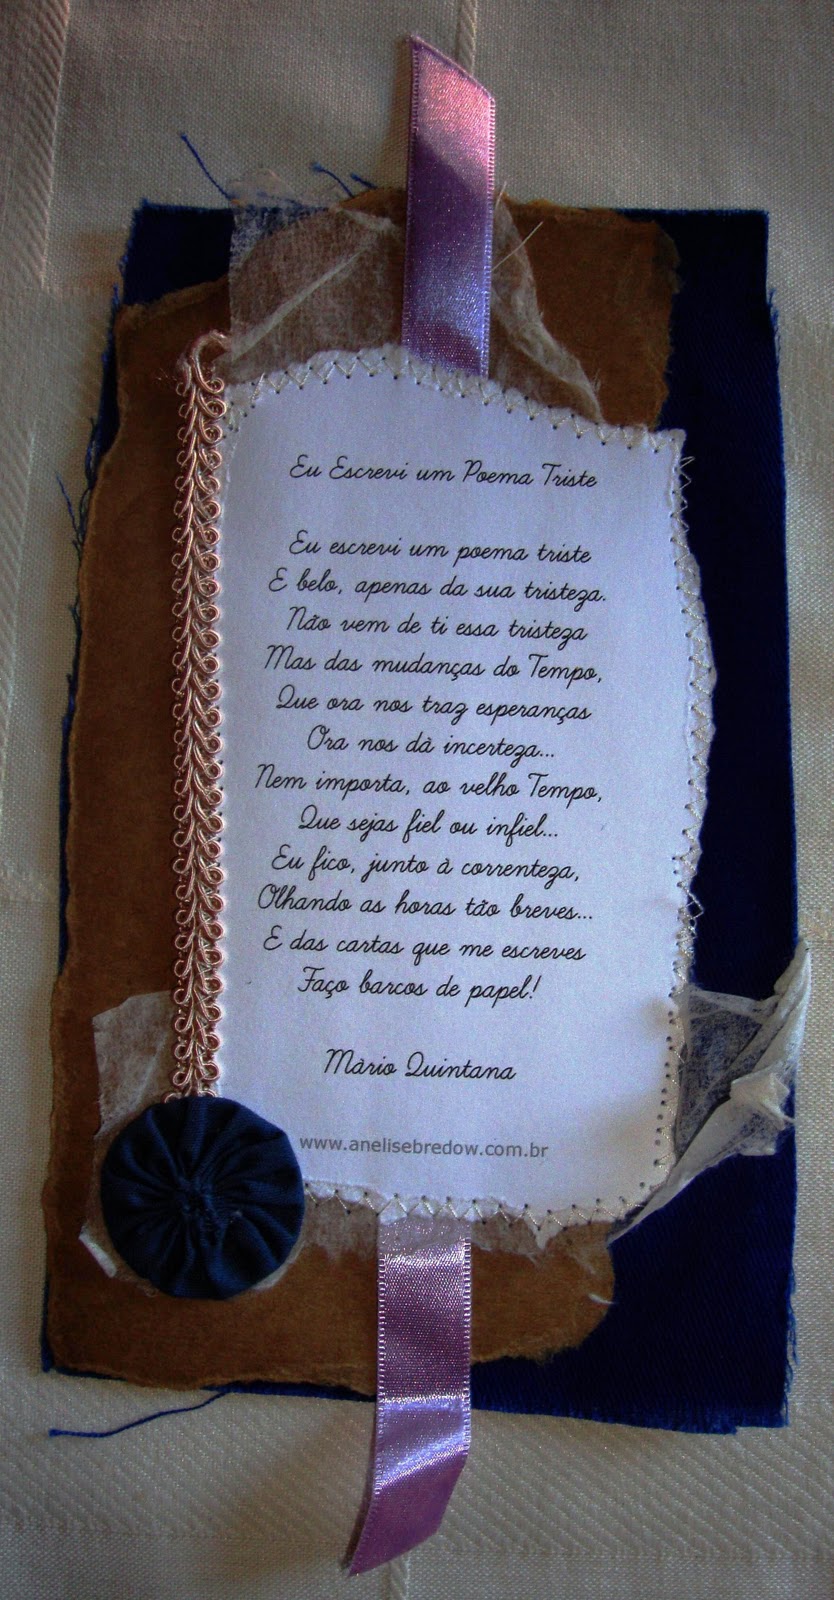 Eu Escrevi um Poema Triste
Eu escrevi um poema triste
E belo, apenas da sua tristeza.
Não vem de ti essa tristeza
Mas das mudanças do Tempo,
Que ora nos traz esperanças
Ora nos dá incerteza...
Nem importa, ao velho Tempo,
Que sejas fiel ou infiel...
Eu fico, junto à correnteza,
Olhando as horas tão breves...
E das cartas que me escreves
Faço barcos de papel!
Mário Quintana
www.anelisebredow.com.br